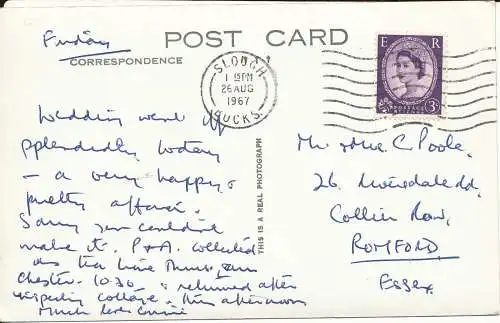 Friday
POST CARD
CORRESPONDENCE
SLOUGH
1 15PM
26 AUG
1967
BUCKS.
E R
POSTAGE
3D
THIS IS A REAL PHOTOGRAPH
Wedding went off
splendidly today
— a very happy &
pretty affair.
Sorry you couldn't
make it. P & A. collected
us tea time Thurs. from
Chester. 10.30 & returned after
inspecting cottage this afternoon
Much love
Mr &Mrs. C Poole.
26 Rd.
Collier Row,
ROMFORD,
Essex.